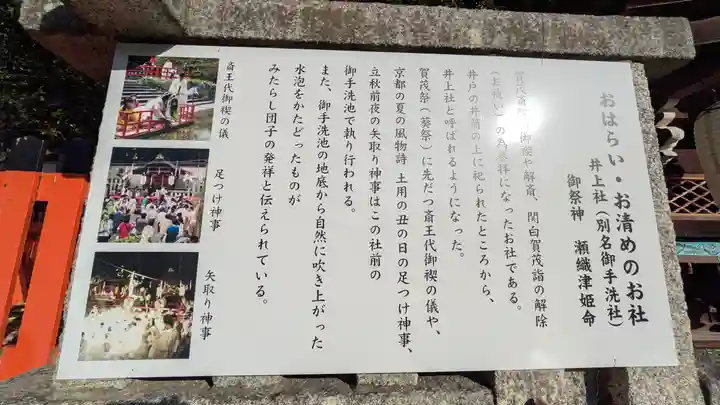 おはらい・お清めのお社
井上社(別名御手洗社)
御祭神 瀬織津姫命
賀茂斎院の御禊や解斎、関白賀茂詣の解除
(お祓い)の為参拝になったお社である。
井戸の井筒の上に祀られたところから、
井上社と呼ばれるようになった。
賀茂祭(葵祭)に先だつ斎王代御禊の儀や、
京都の夏の風物詩 土用の丑の日の足つけ神事、
立秋前夜の矢取り神事はこの社前の
御手洗池で執り行われる。
また、御手洗池の地底から自然に吹き上がった
水泡をかたどったものが
みたらし団子の発祥と伝えられている。
斎王代御禊の儀
足つけ神事
矢取り神事